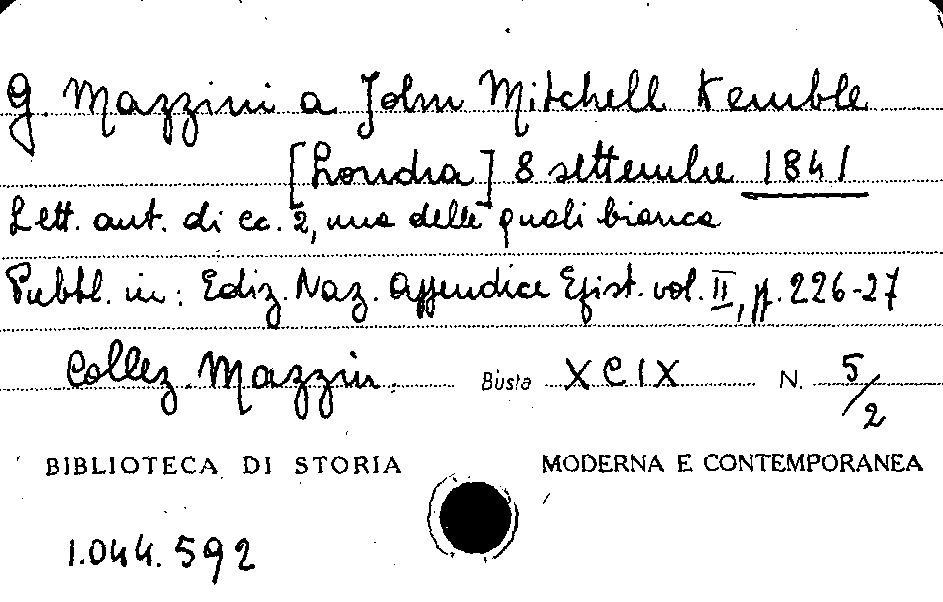 G. Mazzini a John Mitchell Kemble
[Londra] 8 settembre 1841
Lett. aut. di cc. 2, una delle quali bianca
Pubbl. in: Ediz. Naz. Appendice Epist. vol. II, pp. 226-27
Collez. Mazzin. Busta XCIX N. 5/2
BIBLIOTECA DI STORIA MODERNA E CONTEMPORANEA
1.044.592